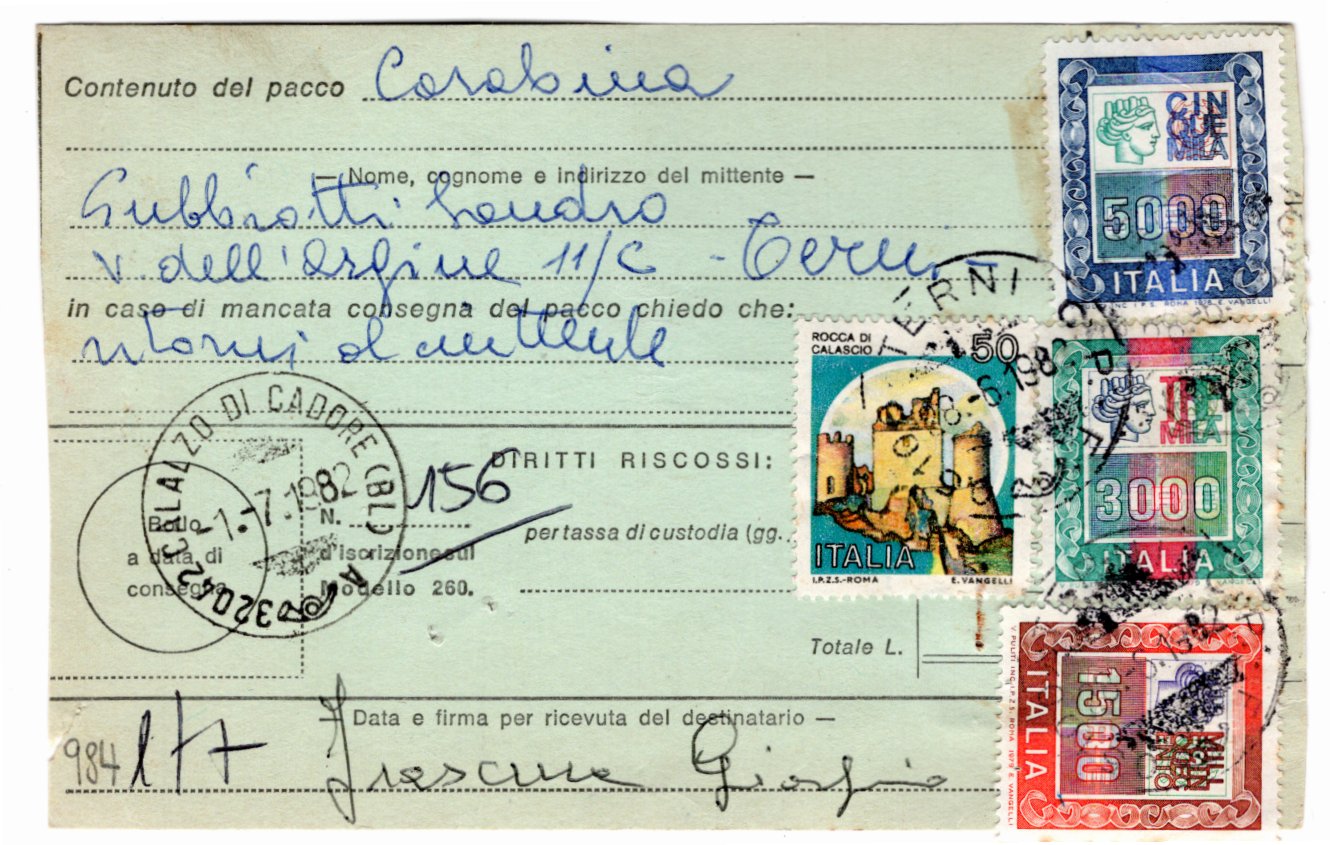 Contenuto del pacco Carabina
— Nome, cognome e indirizzo del mittente —
Gubbiotti Sandro
V. dell'Argine 11/C - Terni -
in caso di mancata consegna del pacco chiedo che:
ritorni al mittente
CALALZO DI CADORE (BL)
-1.-7.1982
32042
A
Bollo
a data di
consegna
N. 156
d'iscrizione sul
Modello 260.
DIRITTI RISCOSSI:
per tassa di custodia (gg.
Totale L.
— Data e firma per ricevuta del destinatario —
984
Giorgio
CINQUEMILA
5000
ITALIA
INC. I.P.S. ROMA 1978 E. VANGELLI
ROCCA DI
CALASCIO
50
ITALIA
I.P.Z.S.-ROMA E. VANGELLI
TREMILA
3000
ITALIA
E. VANGELLI
MILLECINQUECENTO
1500
ITALIA
V. PULITI INC. I.P.Z.S. ROMA 1979 E. VANGELLI
TERNI
6.1982